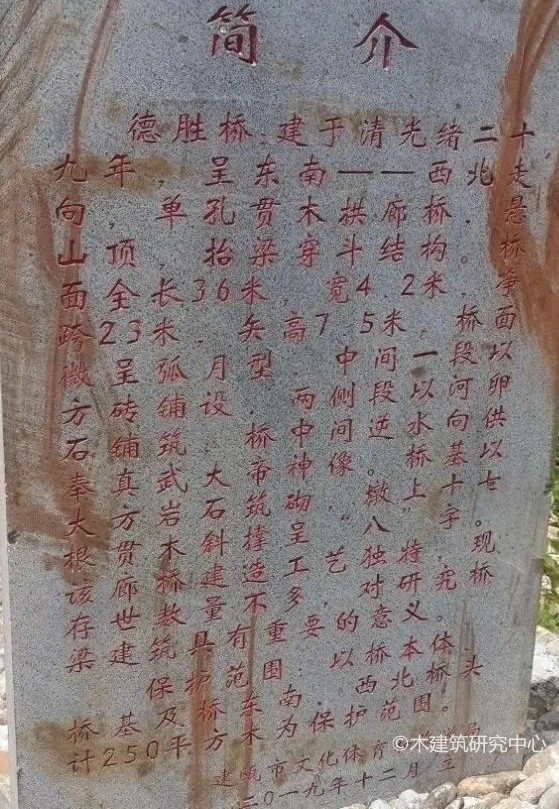 简介
德胜桥,建于清光绪二十
九年,呈东南——西北走
向,单孔贯木拱廊桥。悬
山顶,抬梁穿斗结构。桥
面全长36米,宽4.2米,净
跨23米,矢高7.5米,桥面
微呈弧月型,中间一段以
方砖铺设,两侧段以河卵
石铺筑,桥中间逆水向供
奉真武大帝神像。桥基以
大方岩石筑砌,上十七
根贯木斜撑呈“八”字。
该廊桥建造工艺独特,现
存世数量不多,对研究桥
梁建筑具有重要的意义。
保护范围:以桥本体
桥基及桥东南、西北桥头
计250平方米为保护范围。
建瓯市文化体育局
二〇一九年十二月立
©木建筑研究中心